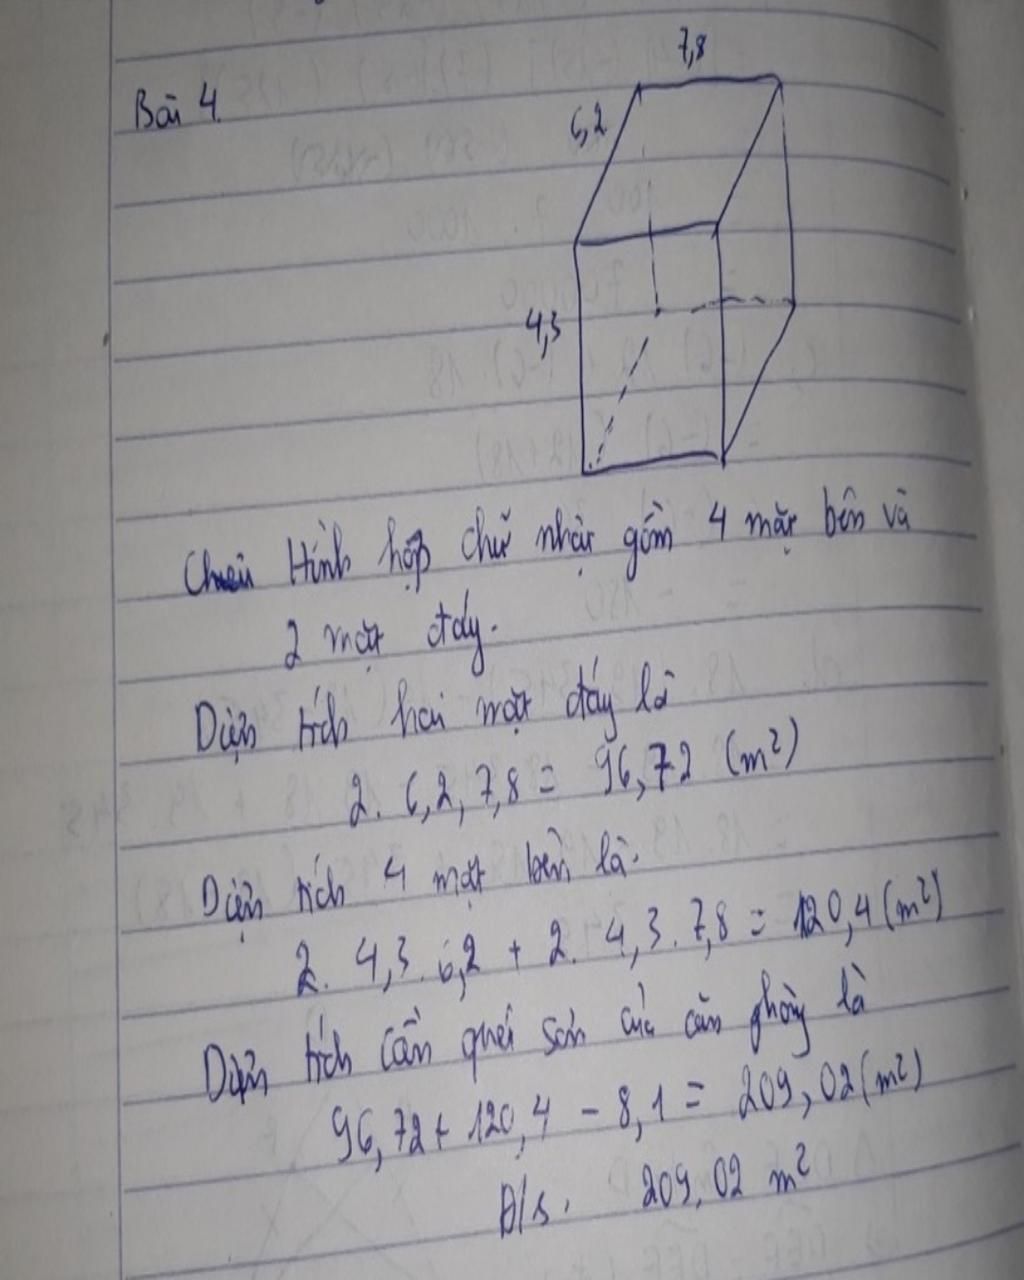 Bài 4.
7,8
6,2
4,3
Hình hộp chữ nhật gồm 4 mặt bên và
2 mặt đáy.
Diện tích hai mặt đáy là
2. 6,2, 7,8 = 96,72 (m²)
Diện tích 4 mặt bên là.
2. 4,3. 6,2 + 2. 4,3. 7,8 = 120,4 (m²)
Diện tích cần quét sơn của căn phòng là
96,72 + 120,4 - 8,1 = 209,02 (m²)
Đ/s. 209,02 m²